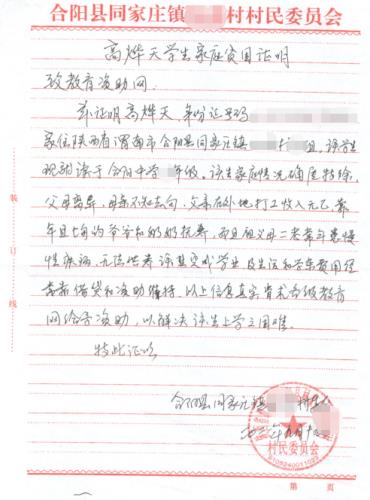 合阳县同家庄镇 村村民委员会
高烨天学生家庭贫困证明
致教育资助网:
兹证明高烨天,身份证号码
家住陕西省渭南市合阳县同家庄镇 组,该学生
现就读于合阳中学 年级。该生家庭情况确属特殊,
父母离异,母亲不知去向,父亲在外地打工收入无几,常
年且七旬的爷爷和奶奶抚养,而且祖父母二老常年患慢
性疾病,无法供养 其完成学业及生活和学杂费用经
常靠借贷和资助维持。以上信息真实,贵 教育
网给予资助,以解决该生上学之困难。
特此证明
合阳县同家庄镇 村
装
订
线
村民委员会
第 页